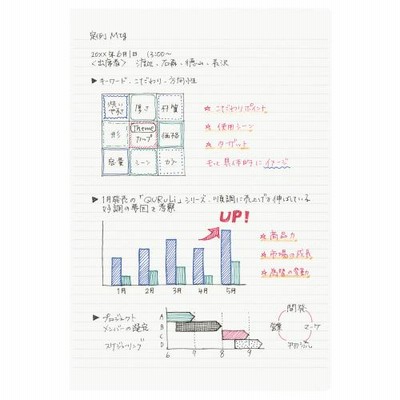 定例 Mtg
20XX年6月1日 13:00〜
〈出席者〉
▶ キーワード、こだわり、方向性
使いやすさ 厚さ 材質
形 Theme カップ 価格
容量 シーン カラー
☆ こだわりポイント
☆ 使用シーン
☆ ターゲット
もっと具体的にイメージ
▶ 1月発売の「QURULi」シリーズ、順調に売上げを伸ばしている
好調の要因を考察
UP!
1月 2月 3月 4月 5月
☆ 商品力
☆ 市場の成長
☆ 為替の変動
▶ プロジェクト
メンバーの選定
スケジューリング
A
B
C
D
6 7 8 9
開発
営業 マーケ